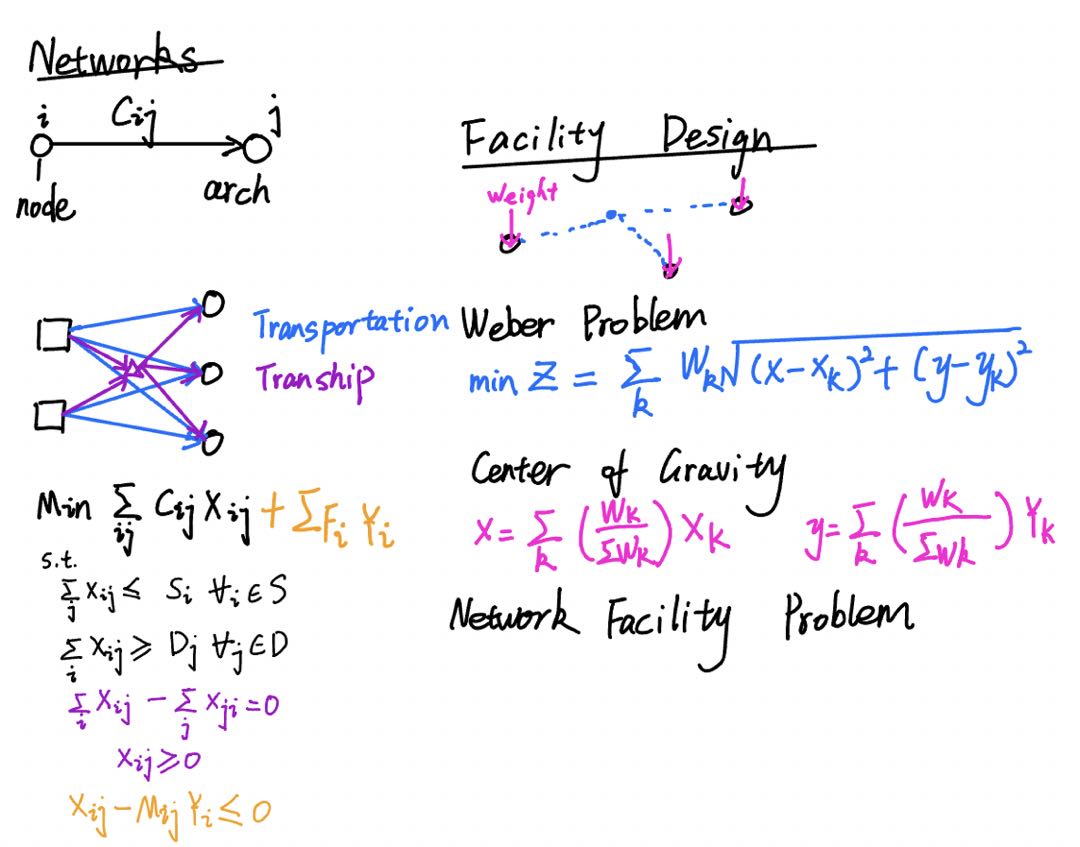 Networks
i Cij j
node arch
Transportation
Tranship
Min Σij Cij Xij + Σ Fi Yi
s.t.
Σj Xij ≤ Si ∀i ∈ S
Σi Xij ≥ Dj ∀j ∈ D
Σi Xij − Σj Xji = 0
Xij ≥ 0
Xij − Mij Yi ≤ 0
Facility Design
Weight
Weber Problem
min Z = Σk Wk √(x−xk)² + (y−yk)²
Center of Gravity
x = Σk (Wk/ΣWk) Xk y = Σk (Wk/ΣWk) Yk
Network Facility Problem